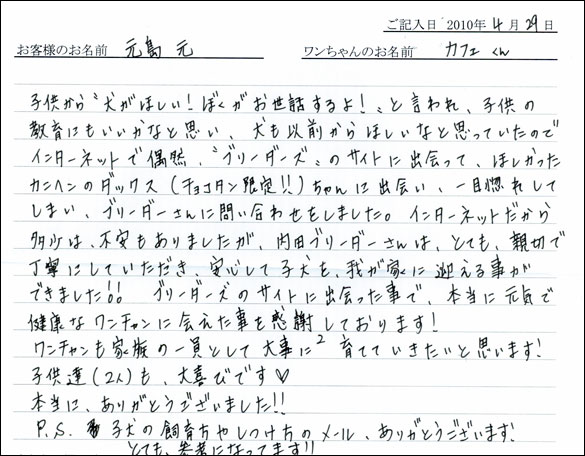 ご記入日 2010年4月29日
お客様のお名前 元島 元 ワンちゃんのお名前 カフェくん
子供から〝犬がほしい!ぼくがお世話するよ!〟と言われ、子供の
教育にもいいかなと思い、犬も以前からほしいなと思っていたので
インターネットで偶然、〝ブリーダーズ〟のサイトに出会って、ほしかった
カニヘンのダックス(チョコタン限定!!)ちゃんに出会い、一目惚れして
しまい、ブリーダーさんに問い合わせをしました。インターネットだから
多少は、不安もありましたが、内田ブリーダーさんは、とても、親切で
丁寧にしていただき、安心して子犬を、我が家に迎える事が
できました!! ブリーダーズのサイトに出会った事で、本当に元気で
健康なワンチャンに会えた事を感謝しております!
ワンチャンも家族の一員として大事に2育てていきたいと思います!
子供達(2人)も、大喜びです♡
本当に、ありがとうございました!!
P.S. 子犬の飼育ちやしつけ方のメール、ありがとうございます!
とても、参考になってます!!